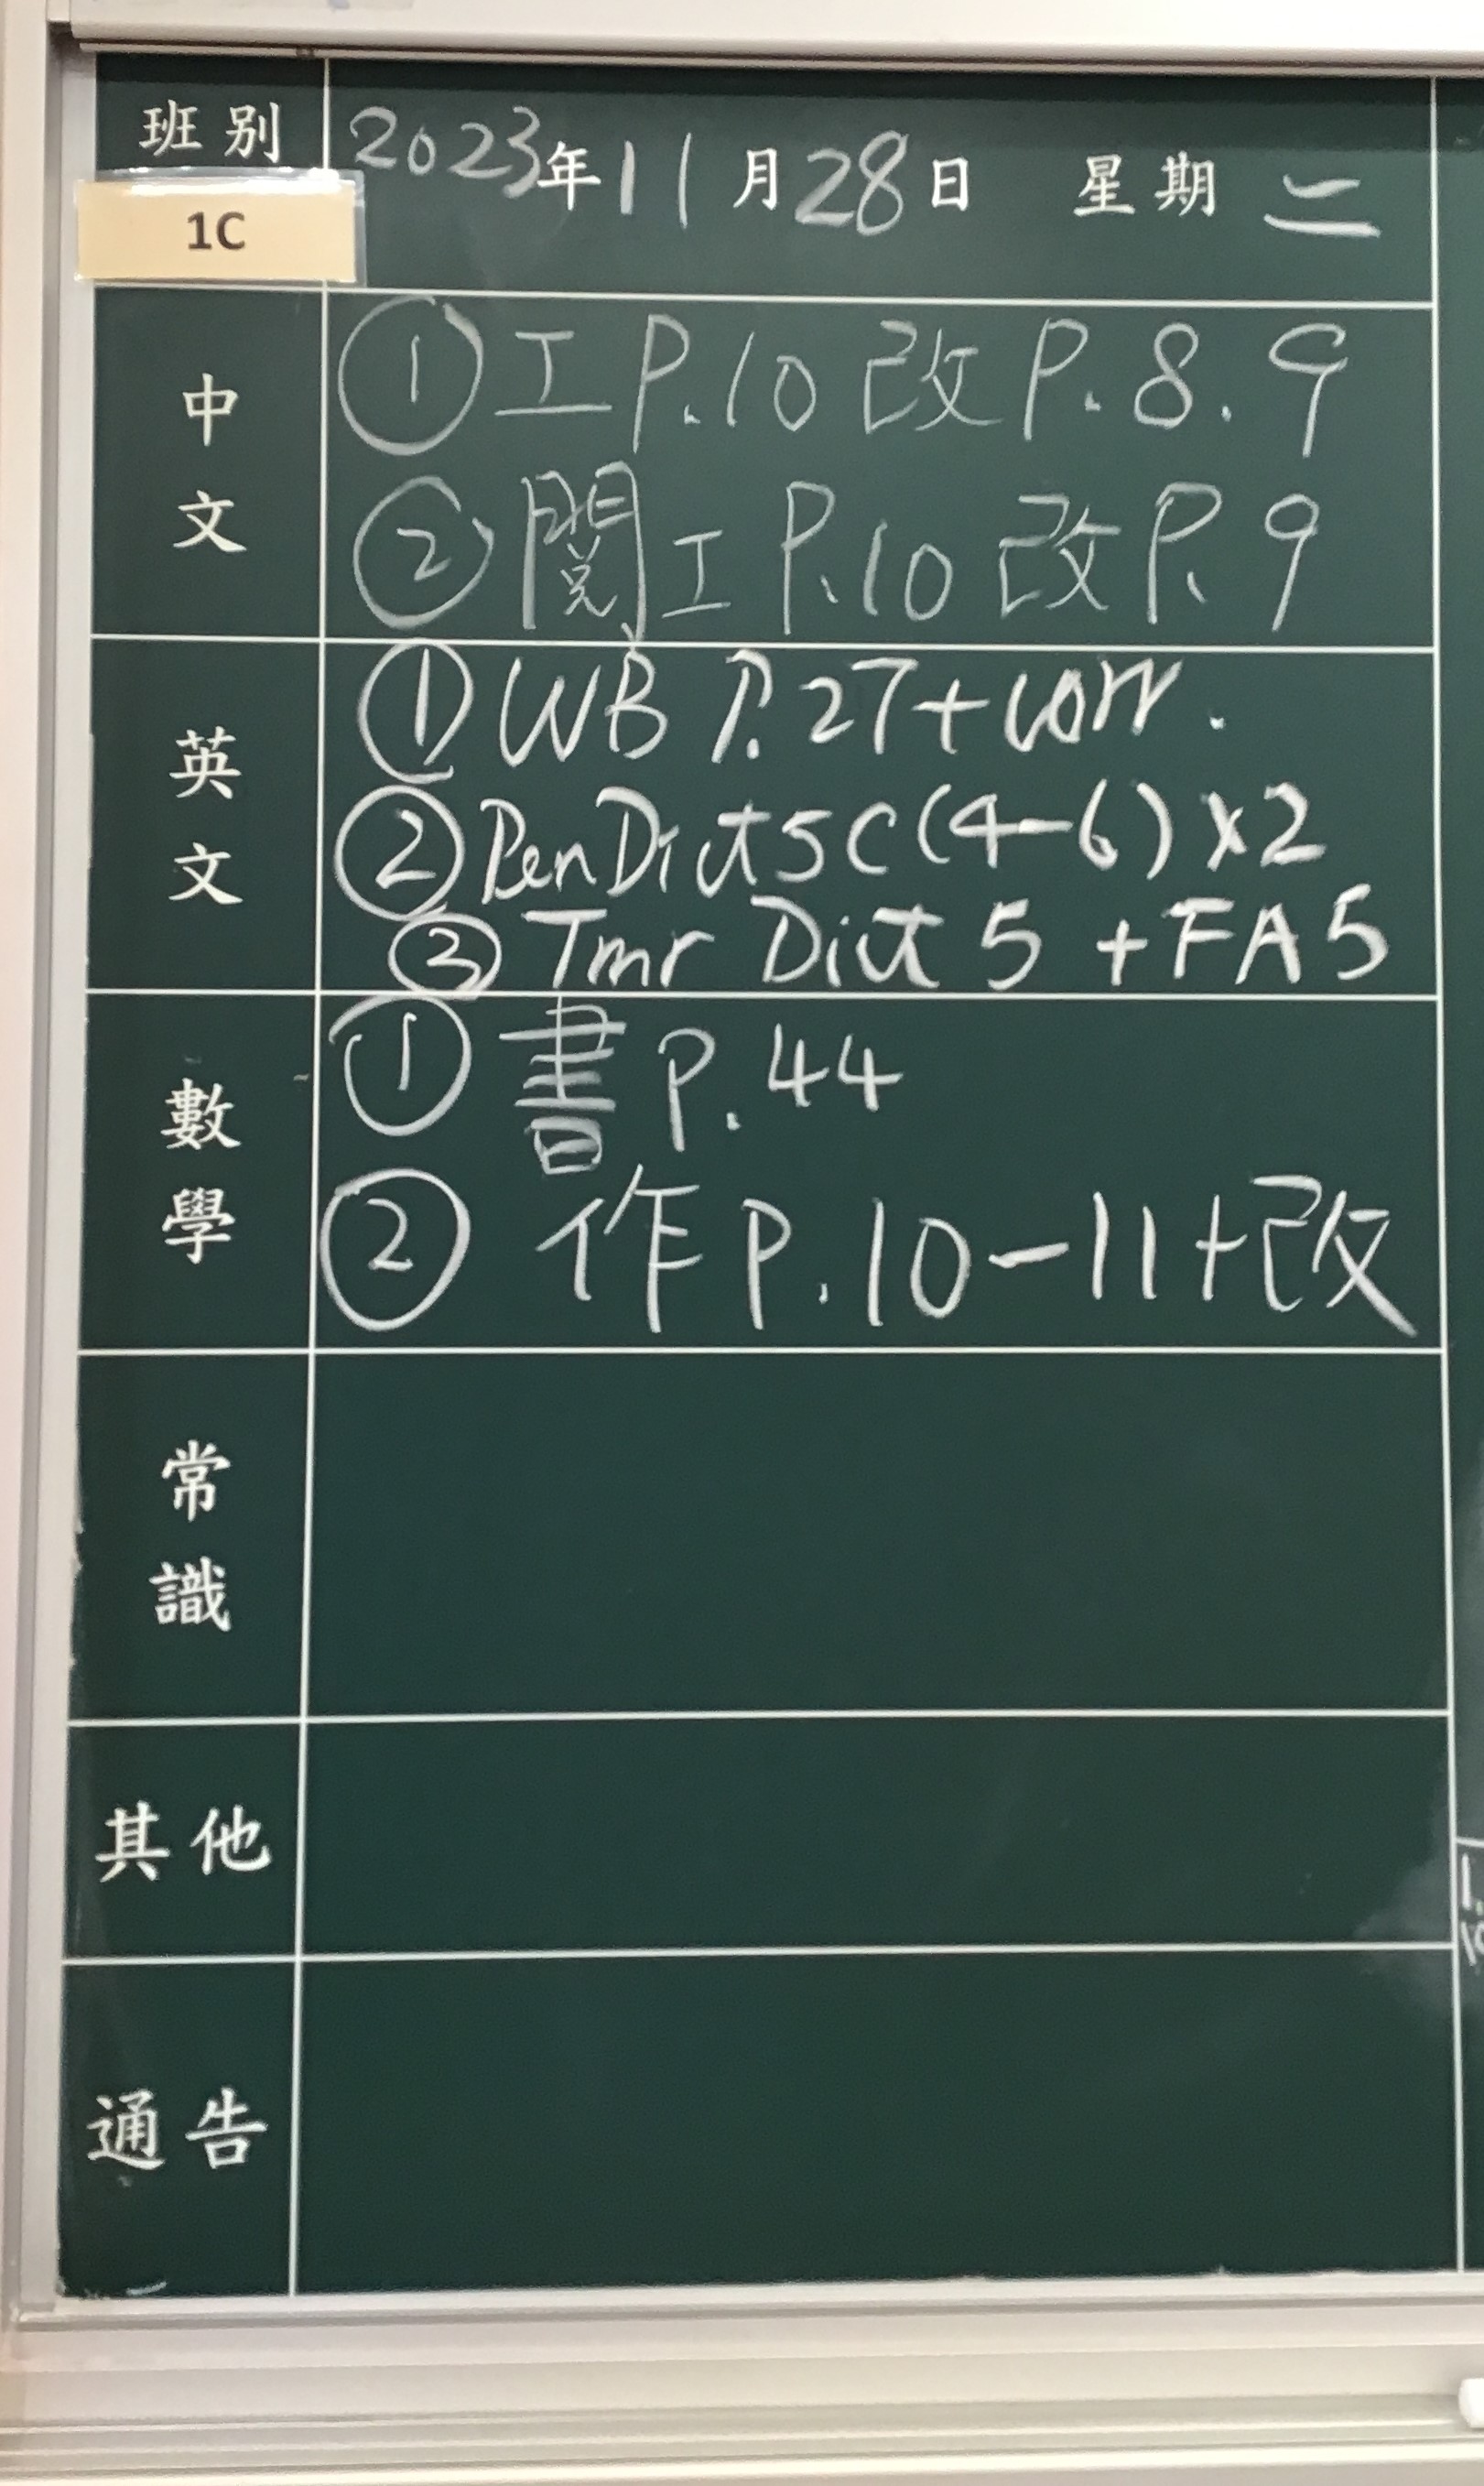 班別 2023年11月28日 星期二
1C
中文 ①工P.10改P.8.9
②閱工P.10改P.9
英文 ①WB P.27+corr.
②Pen Dict 5C(4-6)×2
③Tmr Dict 5 +FA5
數學 ①書P.44
②作P.10-11+改
常識
其他
通告